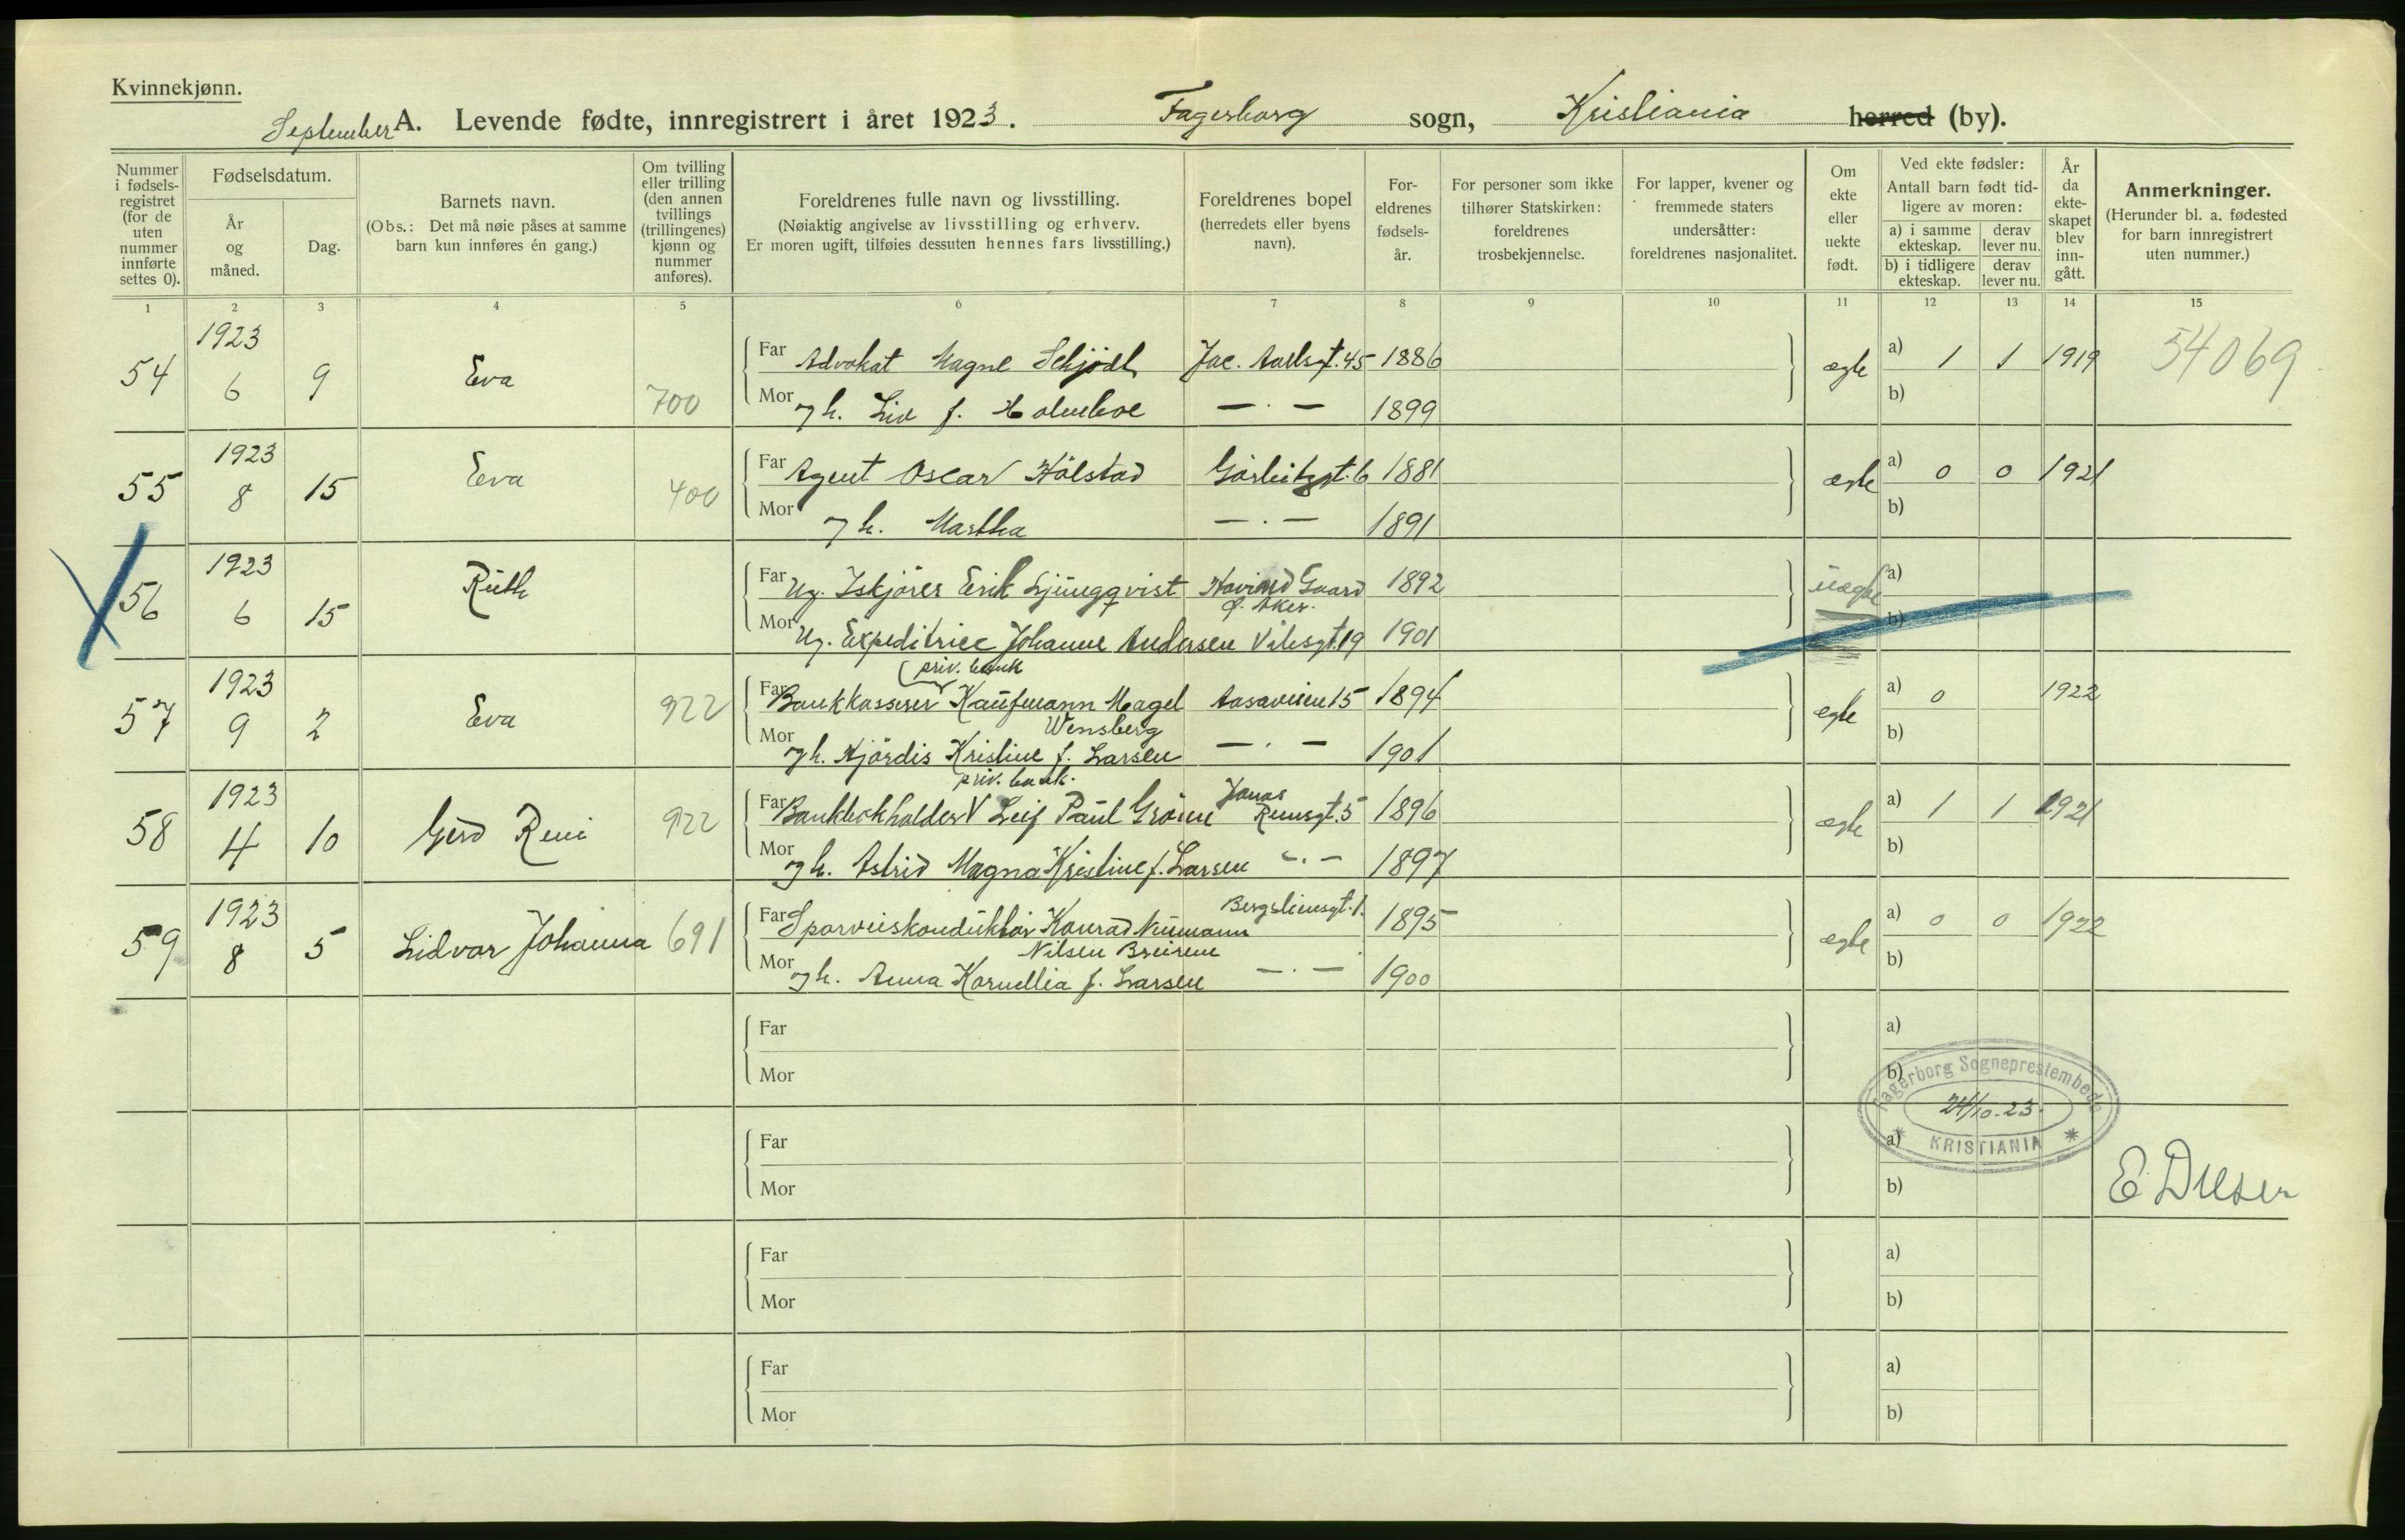 Kvinnekjønn.
September A. Levende fødte, innregistrert i året 1923. Fagerborg sogn, Kristiania herred (by).
Nummer i fødsels-registret (for de uten nummer innførte settes 0).
Fødselsdatum.
År og måned.
Dag.
Barnets navn.
(Obs.: Det må nøie påses at samme barn kun innføres én gang.)
Om tvilling eller trilling (den annen tvillings (trillingenes) kjønn og nummer anføres).
Foreldrenes fulle navn og livsstilling.
(Nøiaktig angivelse av livsstilling og erhverv.
Er moren ugift, tilføies dessuten hennes fars livsstilling.)
Foreldrenes bopel
(herredets eller byens navn).
For-eldrenes fødsels-år.
For personer som ikke tilhører Statskirken: foreldrenes trosbekjennelse.
For lapper, kvener og fremmede staters undersåtter: foreldrenes nasjonalitet.
Om ekte eller uekte født.
Ved ekte fødsler:
Antall barn født tid-ligere av moren:
a) i samme ekteskap. derav lever nu.
b) i tidligere ekteskap. derav lever nu.
År da ekte-skapet blev inn-gått.
Anmerkninger.
(Herunder bl. a. fødested for barn innregistrert uten nummer.)
1 2 3 4 5 6 7 8 9 10 11 12 13 14 15
54 1923 6 9 Eva 700
Far Advokat Magne Schjödt Jac. Aallsgt. 45 1886 ægte a) 1 1 1919 54069
Mor og h. Liv f. Holmboe — . — 1899 b)
55 1923 8 15 Eva 400
Far Agent Oscar Hölstad Görbitzgt. 6 1881 ægte a) 0 0 1921
Mor og h. Martha — . — 1891 b)
56 1923 6 15 Ruth
Far Ug. Iskjörer Erik Ljungqvist Hovind Gaard Ø. Aker. 1892 uægte a)
Mor Ug. Expeditrice Johanne Andersen Vibesgt. 19 1901 b)
57 1923 9 2 Eva 922
priv. bank
Far Bankkasserer Kaufmann Magel Aasaveien 15 1894 ægte a) 0 1922
Wensberg
Mor og h. Hjördis Kristine f. Larsen — . — 1901 b)
58 1923 4 10 Gerd Reni 922
priv. bank.
Far Bankbokholder Leif Paul Gröien Jonas Reinsgt. 5 1896 ægte a) 1 1 1921
Mor og h. Astrid Magna Kristine f. Larsen — . — 1897 b)
59 1923 8 5 Lidvor Johanna 691
Far Sporveiskonduktör Konrad Neumann Bergsliensgt. 1. 1895 ægte a) 0 0 1922
Nilsen Breirem
Mor og h. Anna Kornellia f. Larsen — . — 1900 b)
Far a)
Mor b)
Fagerborg Sogneprestembede
24/10-23.
KRISTIANIA
Far a)
Mor b)
Far a)
Mor b)
Far a)
Mor b)